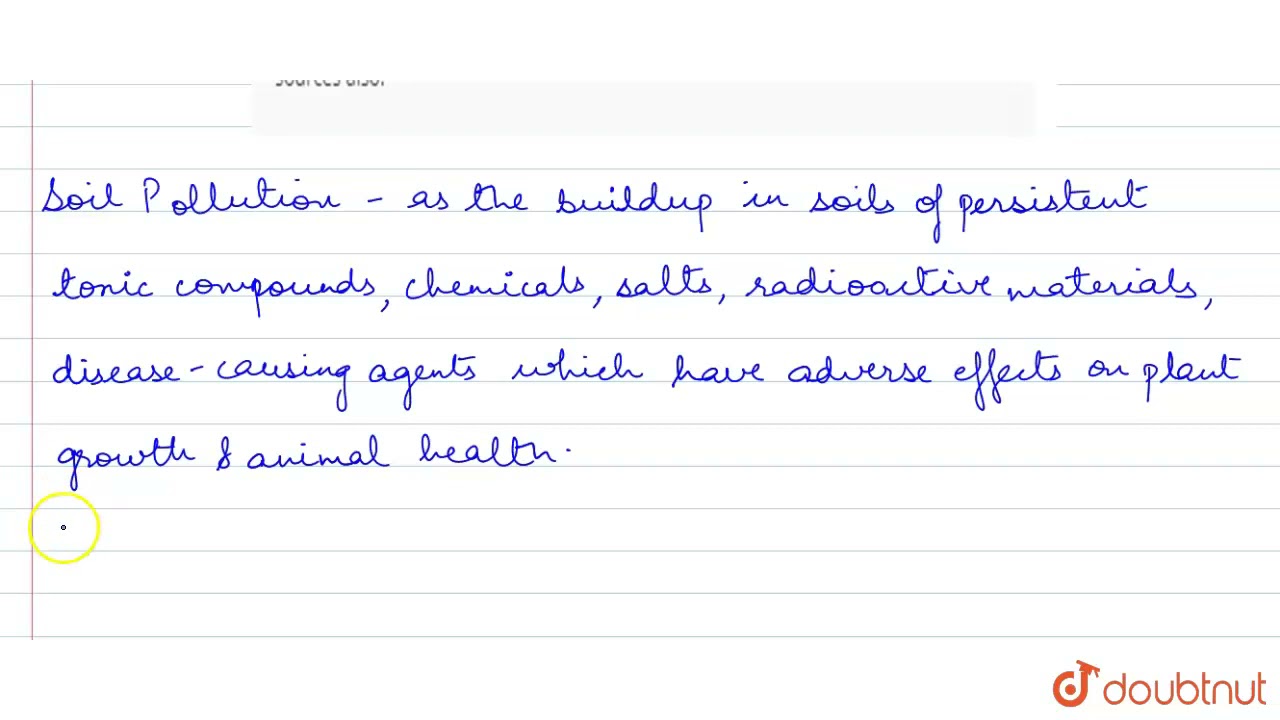 sources also.
Soil Pollution - as the buildup in soils of persistent
tonic compounds, chemicals, salts, radioactive materials,
disease-causing agents which have adverse effects on plant
growth & animal health.
doubtnut